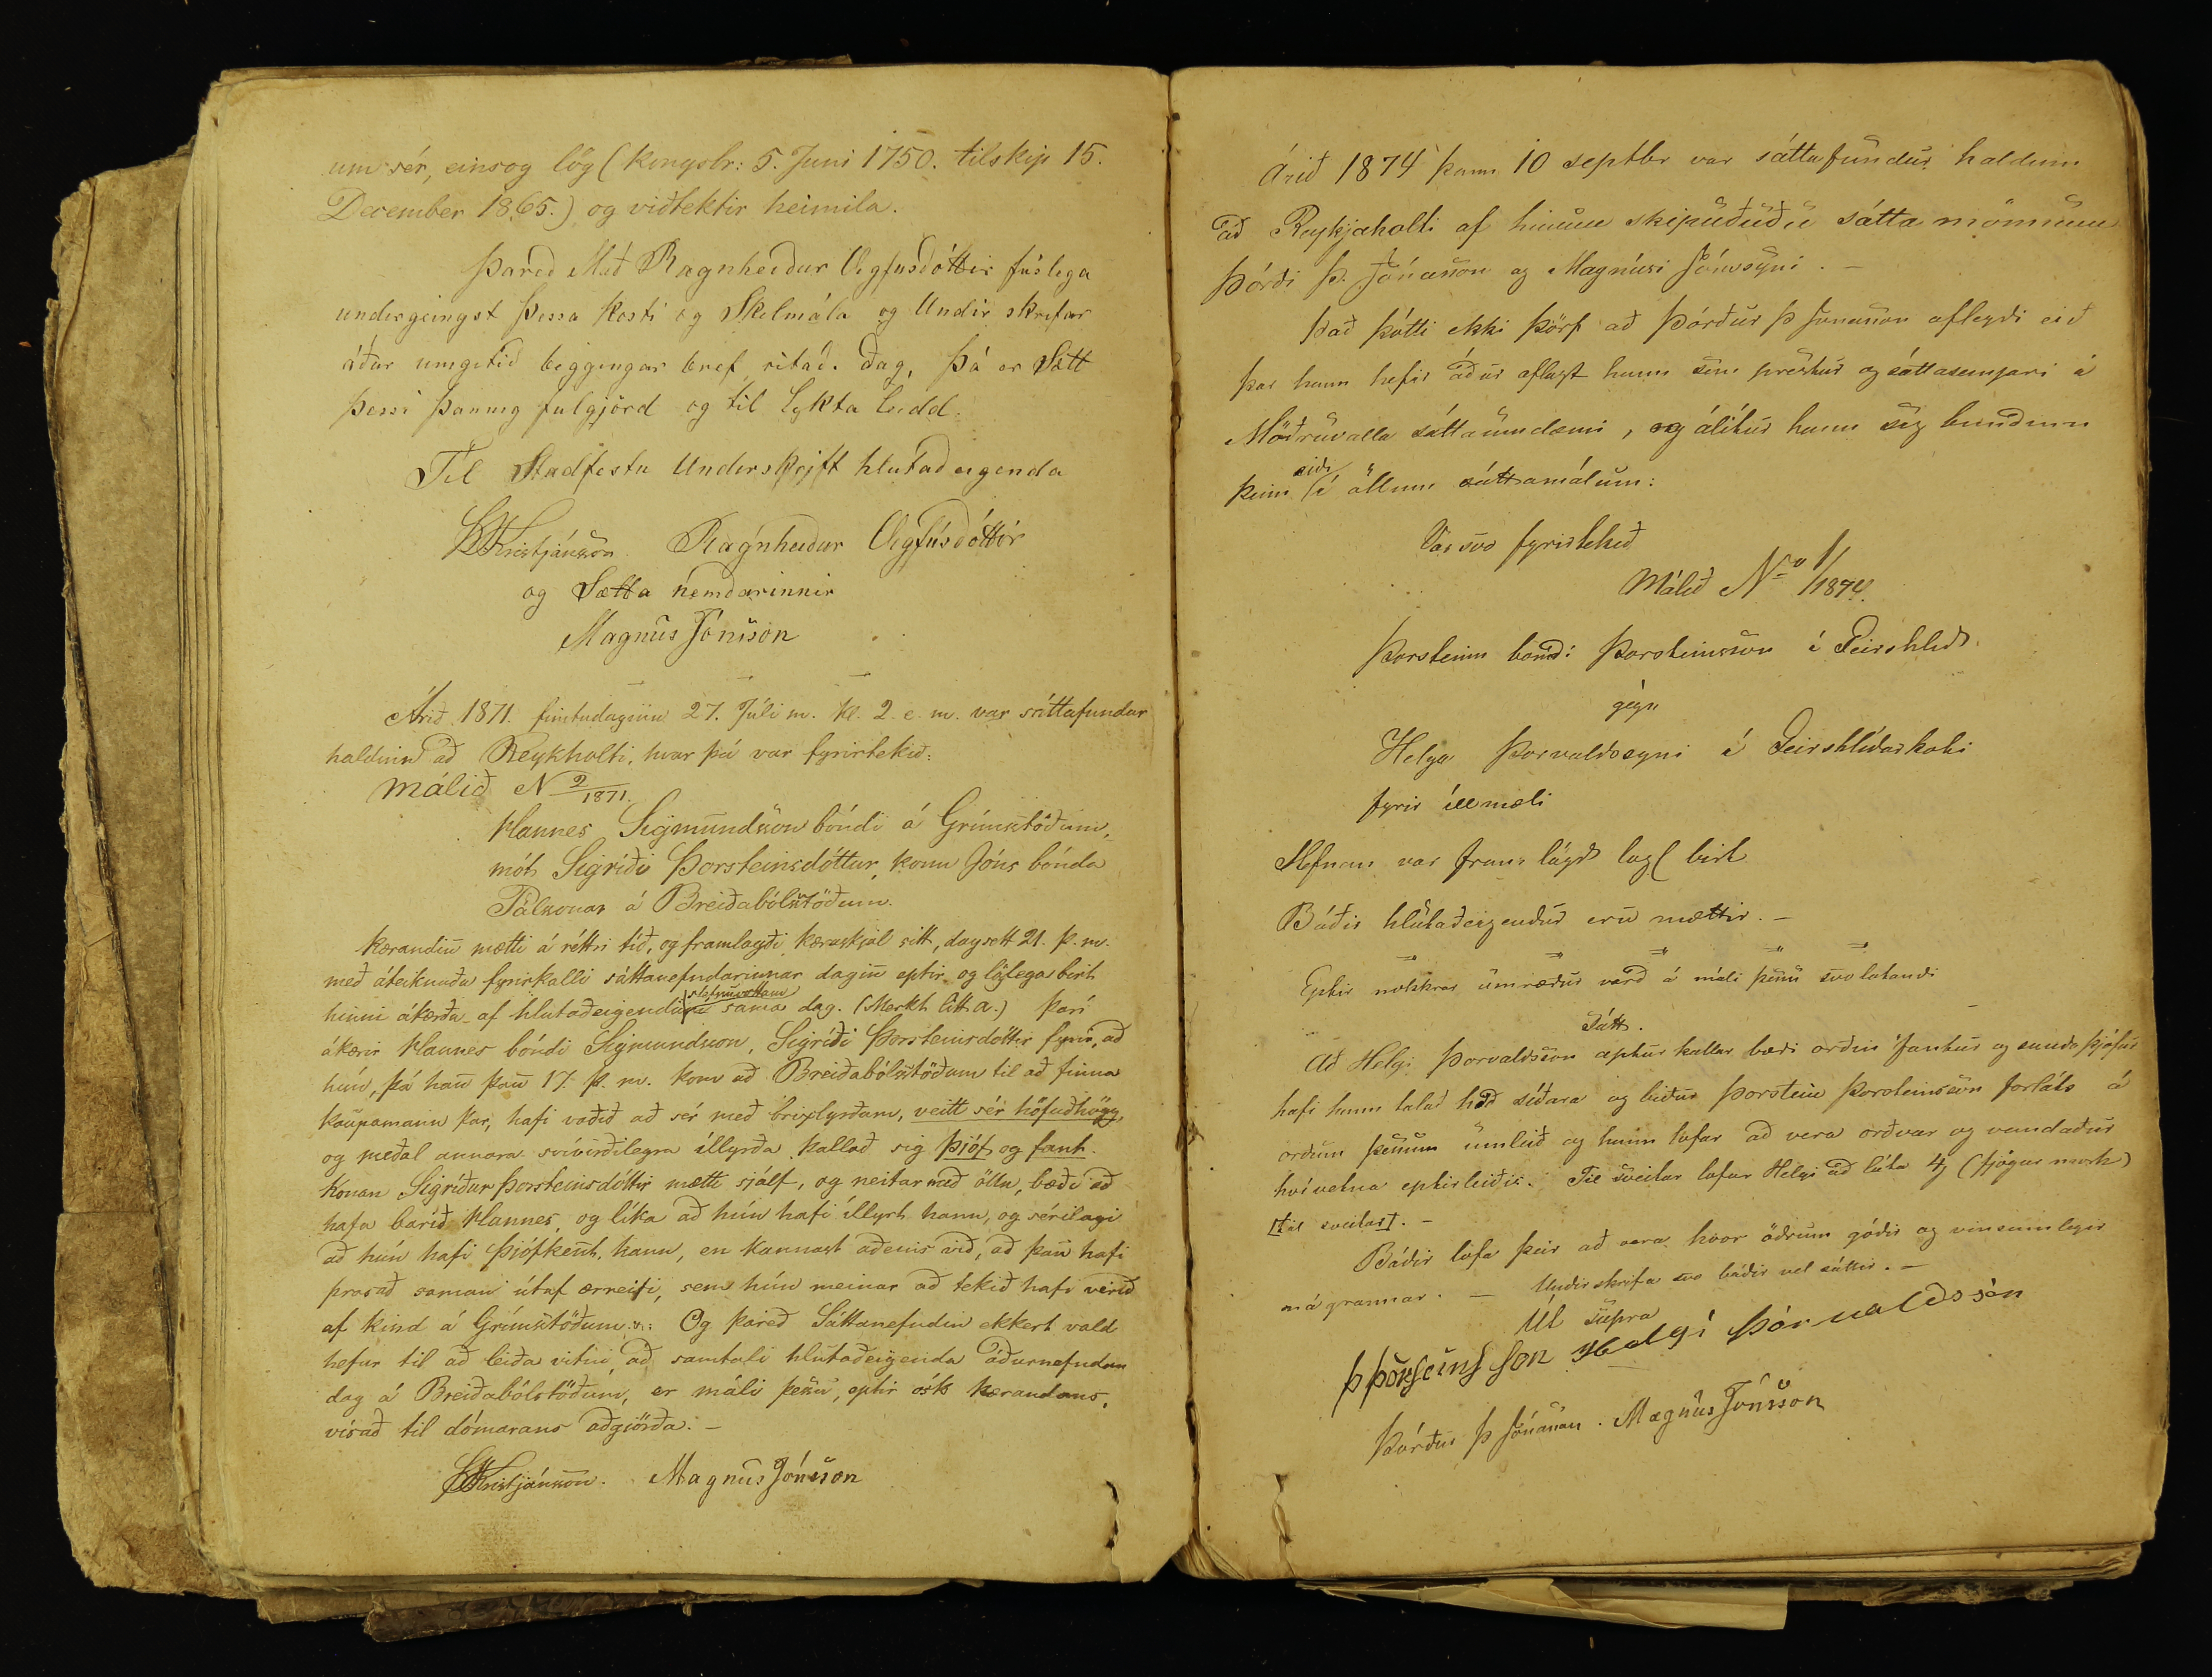 um sér, einsog lög (kongsbr: 5. Juni 1750. tilskip 15.
December 1865.) og viðtektir heimila.
Þared Mað Ragnheiður Vigfusdóttir fúslega
undergeingst þessa kosti og Skilmála og Undir skrifar
áður umgetið beggingar bref, ritað. dag, Þá er Sætt
þessi þannig fulgjörd og til lykta leidd.
Til Stadfestu Underskrift hlutaðeigenda
Kristjánsson Ragnheiður Vigfúsdóttir
og Sætta nemdarinnir
Magnús Jónsson
Árið 1871. fimtudaginn 27. Júli m. kl. 2. e. m. var sáttafundur
haldinn að Reykholti, hvar þá var fyrirtekið:
málið N 2/1871.
Hannes Sigmundsson bóndi á Grímsstöðum,
mót Sigríði Þorsteinsdóttur, konu Jóns bónda
Pálssonar á Breiðabólsstöðum.
Kærandin mætti á réttri tíð, og framlagði kæruskjal sitt, dagsett 21. þ. m.
með áteiknuðu fyrirkalli sáttanefndarinnar dagin eptir og löglega birt
stefnuvottum
hinni ákærðu af hlutaðeigendum sama dag. (Merkt litt a.) Þarí
ákærir Hannes bóndi Sigmundsson, Sigríði Þorsteinsdóttir fyrir, að
hún, þá han þan 17. þ. m. kom að Breiðabólsstöðum til að finna
kaupamann þar, hafi vaðið að sér með brixlyrðum, veitt sér höfuðhögg,
og meðal annara svívirðilegra illyrða kallað sig þjóf og fant.
Konan Sigríður Þorsteinsdóttir mætti sjálf, og neitar með öllu, bæði að
hafa barið Hannes, og líka að hún hafi íllyrt hann, og sérilagi
að hún hafi þjófkent hann, en kannast aðeins við, að þau hafi
þrasað saman útaf ærreifi, sem hún meinar að tekið hafi verið
af kind á Grímsstöðum: Og þareð Sáttanefndin ekkert vald
hefur til að leiða vitni að samtali hlutaðeigenda áðurnefndan
dag á Breiðabólstöðum, er máli þessu, eptir ósk kærandans,
vísað til dómarans aðgiörða. –
Kristjánsson. Magnús Jónsson
Árið 1874 þann 10 septbr var sáttafundur haldinn
að Reykjaholti af hinum skipuðuðu sátta mönnum
Þórði Þ. Jónasson og Magnúsi Jónssyni. –
Það þótti ekki þörf að Þórður Þ Jónasson aflegdi eið
þar hann hefir áður aflagt hann sem prestur og sáttasemjari á
Möðruvalla sáttaumdæmi, og álítur hann sig bundinn
eiði
þeim í öllum sáttamálum:
Var svo fyrirtekið
Málið No 1/1874.
Þorsteinn bóndi Þorsteinsson í Geirshlíð
gegn
Helga Þorvaldssyni á Geirshlíðarkoti
fyrir íllmæli
Stefnan var fram lögð lögl birt
Báðir hlutaðeigendur eru mættir. –
Eptir nokkrar umræður varð á máli þessu svolatandi
Sátt.
Að Helgi Þorvaldsson apturkallar bæði orðin fantur og sauda þjófur
hafi hann talað það síðara og biður Þorstein Þorsteinsson forláts á
orðum þessum umleið og hann lofar að vera orðvar og vandaður
hvívetna eptirleiðis. Til sveitar lofar Helgi að lúta 4 (fjögur mörk)
[til sveitar]. –
Báðir lofa þeir að vera hvor öðrum góðir og vinsamlegir
nágrannar. – Undirskrifa svo báðir vel sáttir. –
Ut supra
Þ Þorsteinsson Helgi Þórvaldssón
Þórður Þ Jónasson. Magnús Jónsson